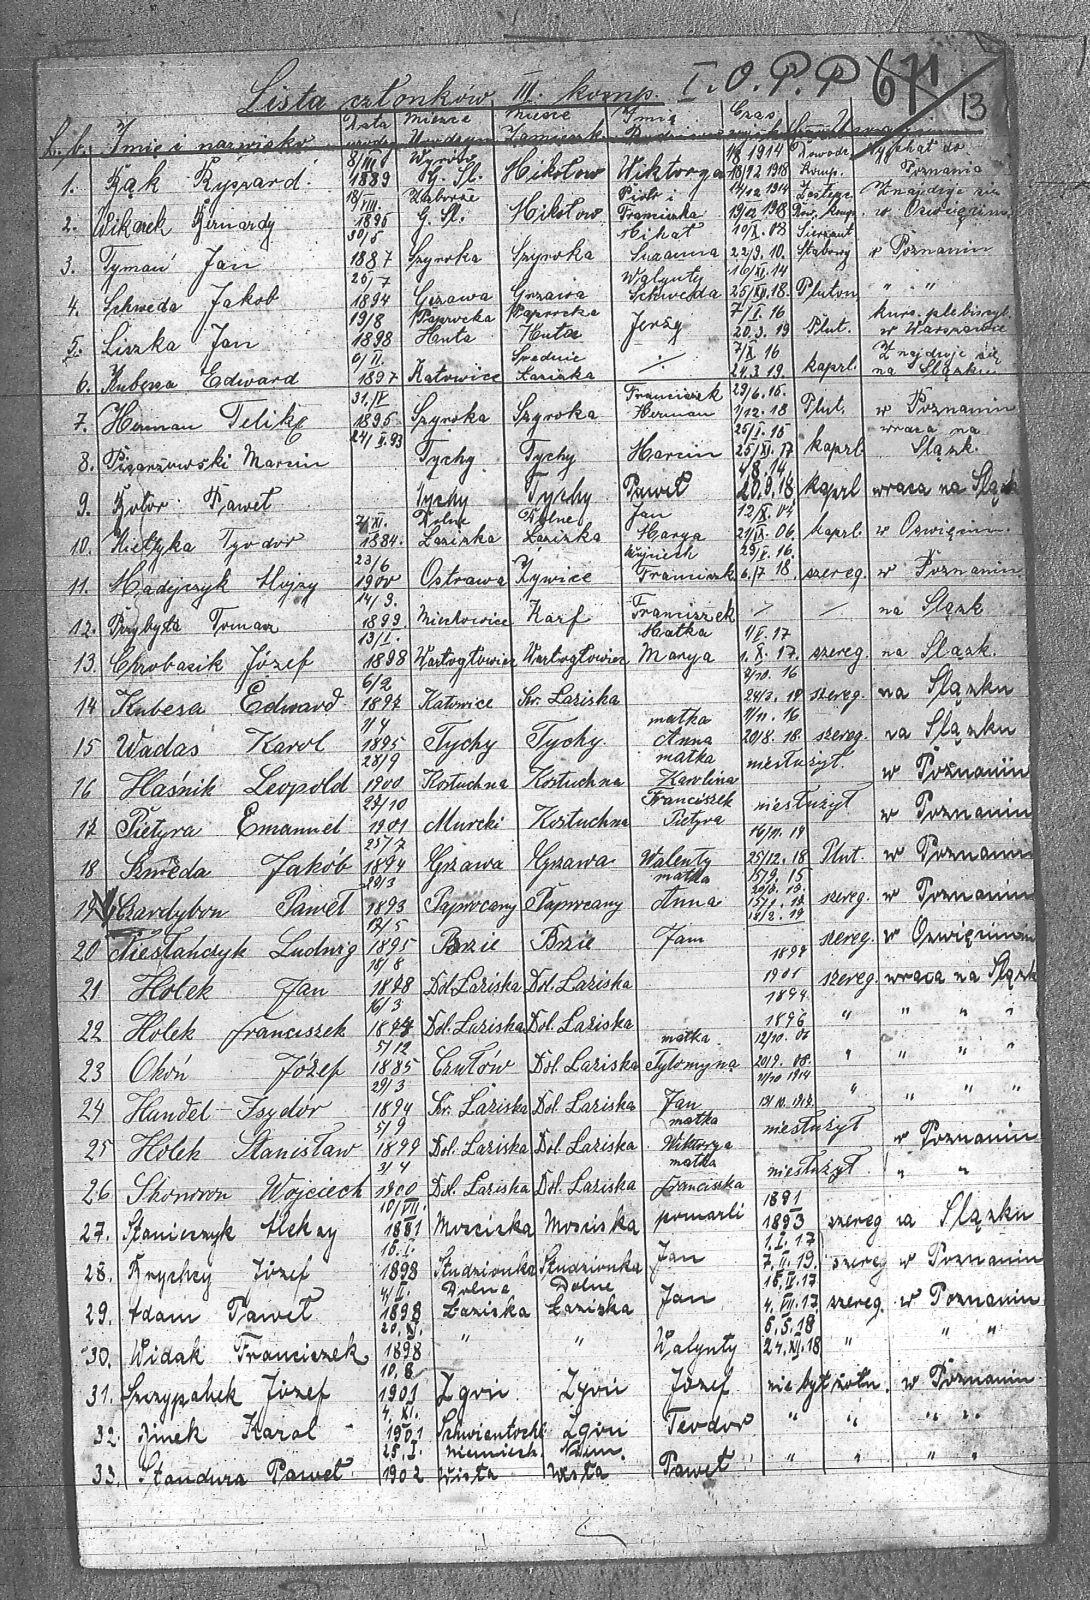 Lista członków III. komp. I. O. P. P 671
13
L. b. Imię i nazwisko Data urodz. Miejsce Urodzen Miejsce Zamieszk. Imię Czas
1. Bąk Ryszard. 8/III 1889 Wyrów G. Śl. Mikołow Wiktorya 1/8 1914 18/12 1918 Dowodz. Komp. do Poznania
2. Wikarek Bernardy 18/VII. 1895 Zaborze G. Śl. Mikołow Piotr i Franciszka 14/12 1914 19/02 1918 Znajduje się w Oswięcim.
3. Tyman Jan 30/5 1887 Szyroka Szyroka Michał Zuzanna 10/X. 08 22/9. 10. Sierzant Stabowy w Poznaniu
4. Schweda Jakob 25/7 1894 Gozawa Grzawa Walynty Schweda 16/XI. 14 25/XII. 18 Pluton " "
5. Liszka Jan 19/8 1898 Paprocka Huta Paprocka Huta Jerzy 7/I. 16 20.3. 19 Plut. kurs. plebiscyt. w Warszawie
6. Kubesa Edward 6/II. 1897 Katowice Srednie Łaziska ./. 7/X 16 24.3. 19. kaprl. Znajduje się na Śląsku
7. Herman Felik 31/IV 1895 Szyroka Szyroka Franciszek Herman 29/6. 15. 1/12. 18 Plut. w Poznaniu
8. Pisarzowski Marcin 24/ II. 93 Tychy Tychy Marcin 25/I. 15 25/XI. 17 kaprl wraca na Śląsk.
9. Kotor Paweł Tychy Tychy Paweł 4.8.14. 20.9.18. kaprl wraca na Śląsk
10. Kiełtyka Tyodor 7/XI. 1884. Dolne Łaziska Dolne Łaziska Jan Marya 12/X. 04 21/IX. 06. kaprl w Oswięcim.
11. Madejczyk Alojzy 23/6 1900 Ostrawa Żywice Wojciech Franciszk 29/V. 16. 6./7 18. szereg. w Poznaniu
12. Przybyła Tomasz 14/3. 1899 Miechowice Karf Franciszek / / na Śląsk
13. Chrobasik Józef 13/I. 1898 Wartogłowiec Wartogłowiec Matka Marya 1/V. 17 1. X. 17. szereg. na Śląsk.
14 Kubesa Edward 6/2 1897 Katowice Śr. Łaziska 2/10. 16 24/3. 19 szereg. na Śląsku
15 Wadas Karol 7/4 1895 Tychy Tychy. matka Anna 1/11. 16 20/8. 18. szereg. na Śląsku
16 Haśnik Leopold 28/9 1900 Kostuchna Kostuchna matka Karolina niesłużył. w Poznaniu
17 Pietyra Emanuel 29/10 1901 Murcki Kostuchna Franciszek Pietyra niesłużył w Poznaniu
18 Szweda Jakób 25/7 1894 Grzawa Grzawa Walenty 16/11. 14 25/12. 18 Plut. w Poznaniu
19 Czardybon Paweł 29/3 1893 Paprocany Paprocany matka Anna 15/9. 15 szereg. w Poznaniu
20 Niesłańczyk Ludwig 12/5 1895 Brzie Brzie Jan szereg. w Oswięcimiu
21 Holek Jan 18/8 1878 Dol. Łaziska Dol. Łaziska 1899 1901 szereg. wraca na Śląsk
22 Holek Franciszek 16/3 Dol. Łaziska Dol. Łaziska 1894 1896 " " " "
23 Okoń Józef 5/12 1885 Czułów Dol. Łaziska matka Fylomyna 12/10. 06 20/9. 08. " " " "
24 Hundel Isydór 29/3 1894 Śr. Łaziska Dol. Łaziska Jan 2/10 1914 " " " "
25 Holek Stanisław 5/9 1899 Dol. Łaziska Dol. Łaziska matka Wiktorya niesłużył w Poznaniu
26 Skowron Wojciech 3/4 1900 Dol. Łaziska Dol. Łaziska matka Franciszka niesłużył " "
27. Staniczyk Aleksy 10/VII. 1881 Mosciska Mosciska pomarli 1891 1893 szereg na Śląsku
28. Brychcy Józef 16. I. 1898 Studzionka Studzionka Jan 1. I. 17 7. II. 19. szereg w Poznaniu
29. Adam Paweł 4/II. 1898 Dolna Łaziska Dolne Łaziska Jan 16. IV. 17 4. VII. 17. szereg. w Poznaniu
30. Widak Franciszek 20. XI. 1898 " " Walynty 6. 5. 18 24. XII. 18 " " "
31. Szczypahek Józef 10. 8. 1901 Zgoń Zgoń Józef nie był żołn. w Poznaniu.
32. Jmek Karol - 4. XI. 1901 Schwientochl Zgoń Teodor " " " "
33. Standura Paweł 25. I. 1902 niemiech. Wisła Niem. Wisła Paweł " " " "